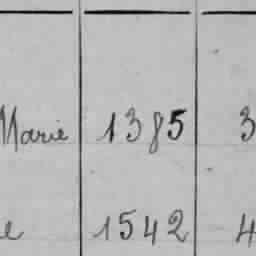 Marie 1385 3
e 1542 4